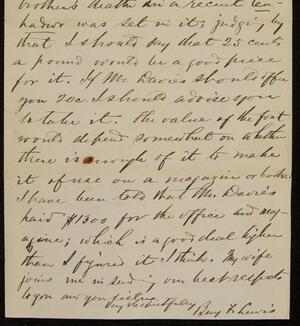 brother's death in a recent
was set in it; judging by
that I should say that 25 cents
a pound would be a good price
for it. If Mr Davies should offer
you 20c. I should advise you
to take it. The value of the font
would depend somewhat on whether
there is enough of it to make
it of use on a magazine or book.
I have been told that Mr. Davies
paid $1300 for the office and mag-
azine; which is a good deal higher
than I figured it I think. My wife
joins me in send'g our best respects
to you and your sister.
Very respectfully
Benj F. Lewis